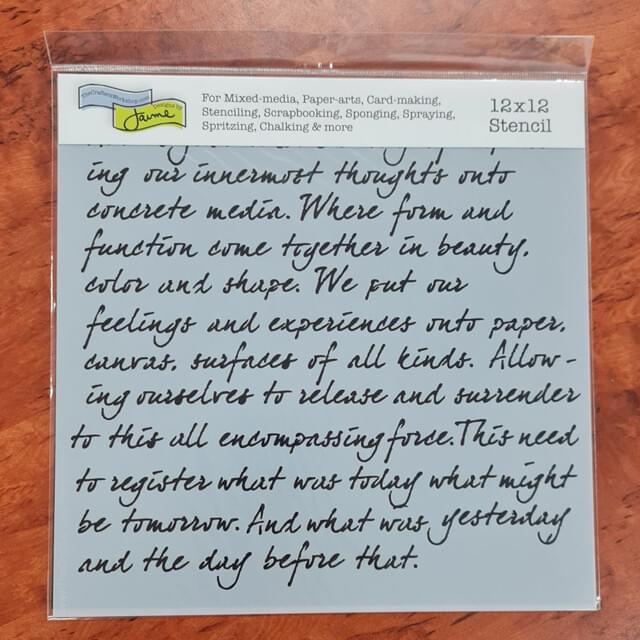 TheCraftersWorkshop.com
Designs by
Jaime
For Mixed-media, Paper-arts, Card-making,
Stenciling, Scrapbooking, Sponging, Spraying,
Spritzing, Chalking & more
12x12
Stencil
ing our innermost thoughts onto
concrete media. Where form and
function come together in beauty,
color and shape. We put our
feelings and experiences onto paper,
canvas, surfaces of all kinds. Allow-
ing ourselves to release and surrender
to this all encompassing force. This need
to register what was today what might
be tomorrow. And what was yesterday
and the day before that.